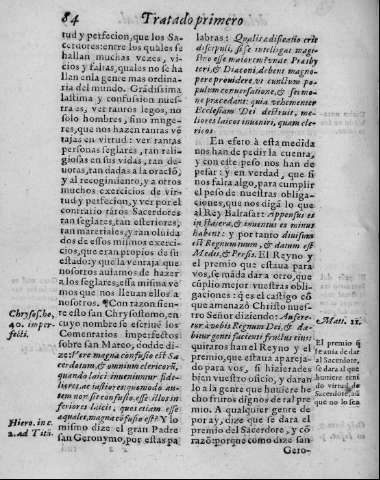 84
Tratado primero
tud y perfecion, que los Sa-
cerdotes: entre los quales se
hallan muchas vezes, vi-
cios y faltas, quales no se ha
llan en la gente mas ordina-
ria del mundo. Grādissima
lastima y confusion nues-
tra es, ver tantos legos, no
solo hombres, sino muge-
res, que nos hazen tantas vē
tajas en virtud: ver tantas
personas seglares, tan reli-
giosas en sus vidas, tan de-
uotas, tan dadas a la oraciō,
y al recogimiento, y a otros
muchos exercicios de vir-
tud y perfecion, y ver por el
contrario tātos Sacerdotes
tan seglares, tan esteriores,
tan materiales, y tan oluida
dos de essos mismos exerci-
cios, que eran propios de su
estado: y que la ventaja que
nosotros auiamos de hazer
a los seglares, essa misma ve
mos que nos lleuan ellos a
nosotros. ¶Con razon sien-
te esto san Chrysostomo, en
cuyo nombre se escriuē los
Comentarios imperfectos
sobre san Marco, dōde di-
ze: Vere magna confusio est Sa-
cerdotum, & omnium clericorū,
quando laici inueniuntur fide-
liores, ac iustiores: quomodo au-
tem non sit confusio, esse illos in-
feriores laicis, quos etiam esse
aquales, magna confusio est? Y lo
mismo dize el gran Padre
san Geronymo, por estas pa
Chrysos. ho.
40. imper-
fecti.
Hiero. in c.
2. ad Titū.
labras: Qualis ædificatio erit
discipuli, si se intelligat magi-
stro esse maiorem? vnde Præsby
teri, & Diaconi, debent magno-
pere prouidere, vt cunctum po-
pulum conuersatione, & sermo-
ne præcedant: quia vehementer
Ecclesiam Dei destruit, me-
liores laicos inueniri, quam cle-
ricos.
En esso a esta medida
nos han de pedir la cuenta,
y con este peso nos han de
pesar: y en verdad, que si
nos falta algo, para cumplir
el peso de nuestras obliga-
ciones, que nos digā lo que
al Rey Baltasar: Appensus es
in statera, & inuentus es minus
habens: y por tanto diuisum
est Regnum tuum, & datum est
Medis, & Persis. El Reyno y
el premio que estaua para
vos, se mādè dara a otro, que
cūplio mejor vuestras obli-
gaciones: q̄ es el castigo cō
que amenazò Christo nues-
tro Señor diziendo: Aufere-
tur à vobis Regnum Dei, & da-
bitur genti facienti fructus eius:
quitaros han el Reyno y el
premio, que estaua apareja-
do para vos, si hizierades
bien vuestro oficio, y daran
lo a la gente que huuiere he
cho frutos dignos de tal pre
mio. A qualquier genero de
por ay, dize que se dara el
premio del Sacerdote, y cō
razō: porque como dize san
Gero-
Matt. 21.
El premio q̄
se auia de dar
al Sacerdote,
se dara al que
huuiere teni
do virtud de
Sacerdote, aū
que no lo sea